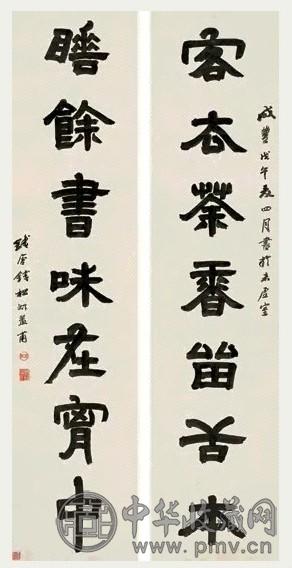 客去茶香留舌本
咸豐戊午夏四月書於未虛室
睡餘書味在胷中
錢松叔蓋甫
中华收藏网
www.pmv.cn